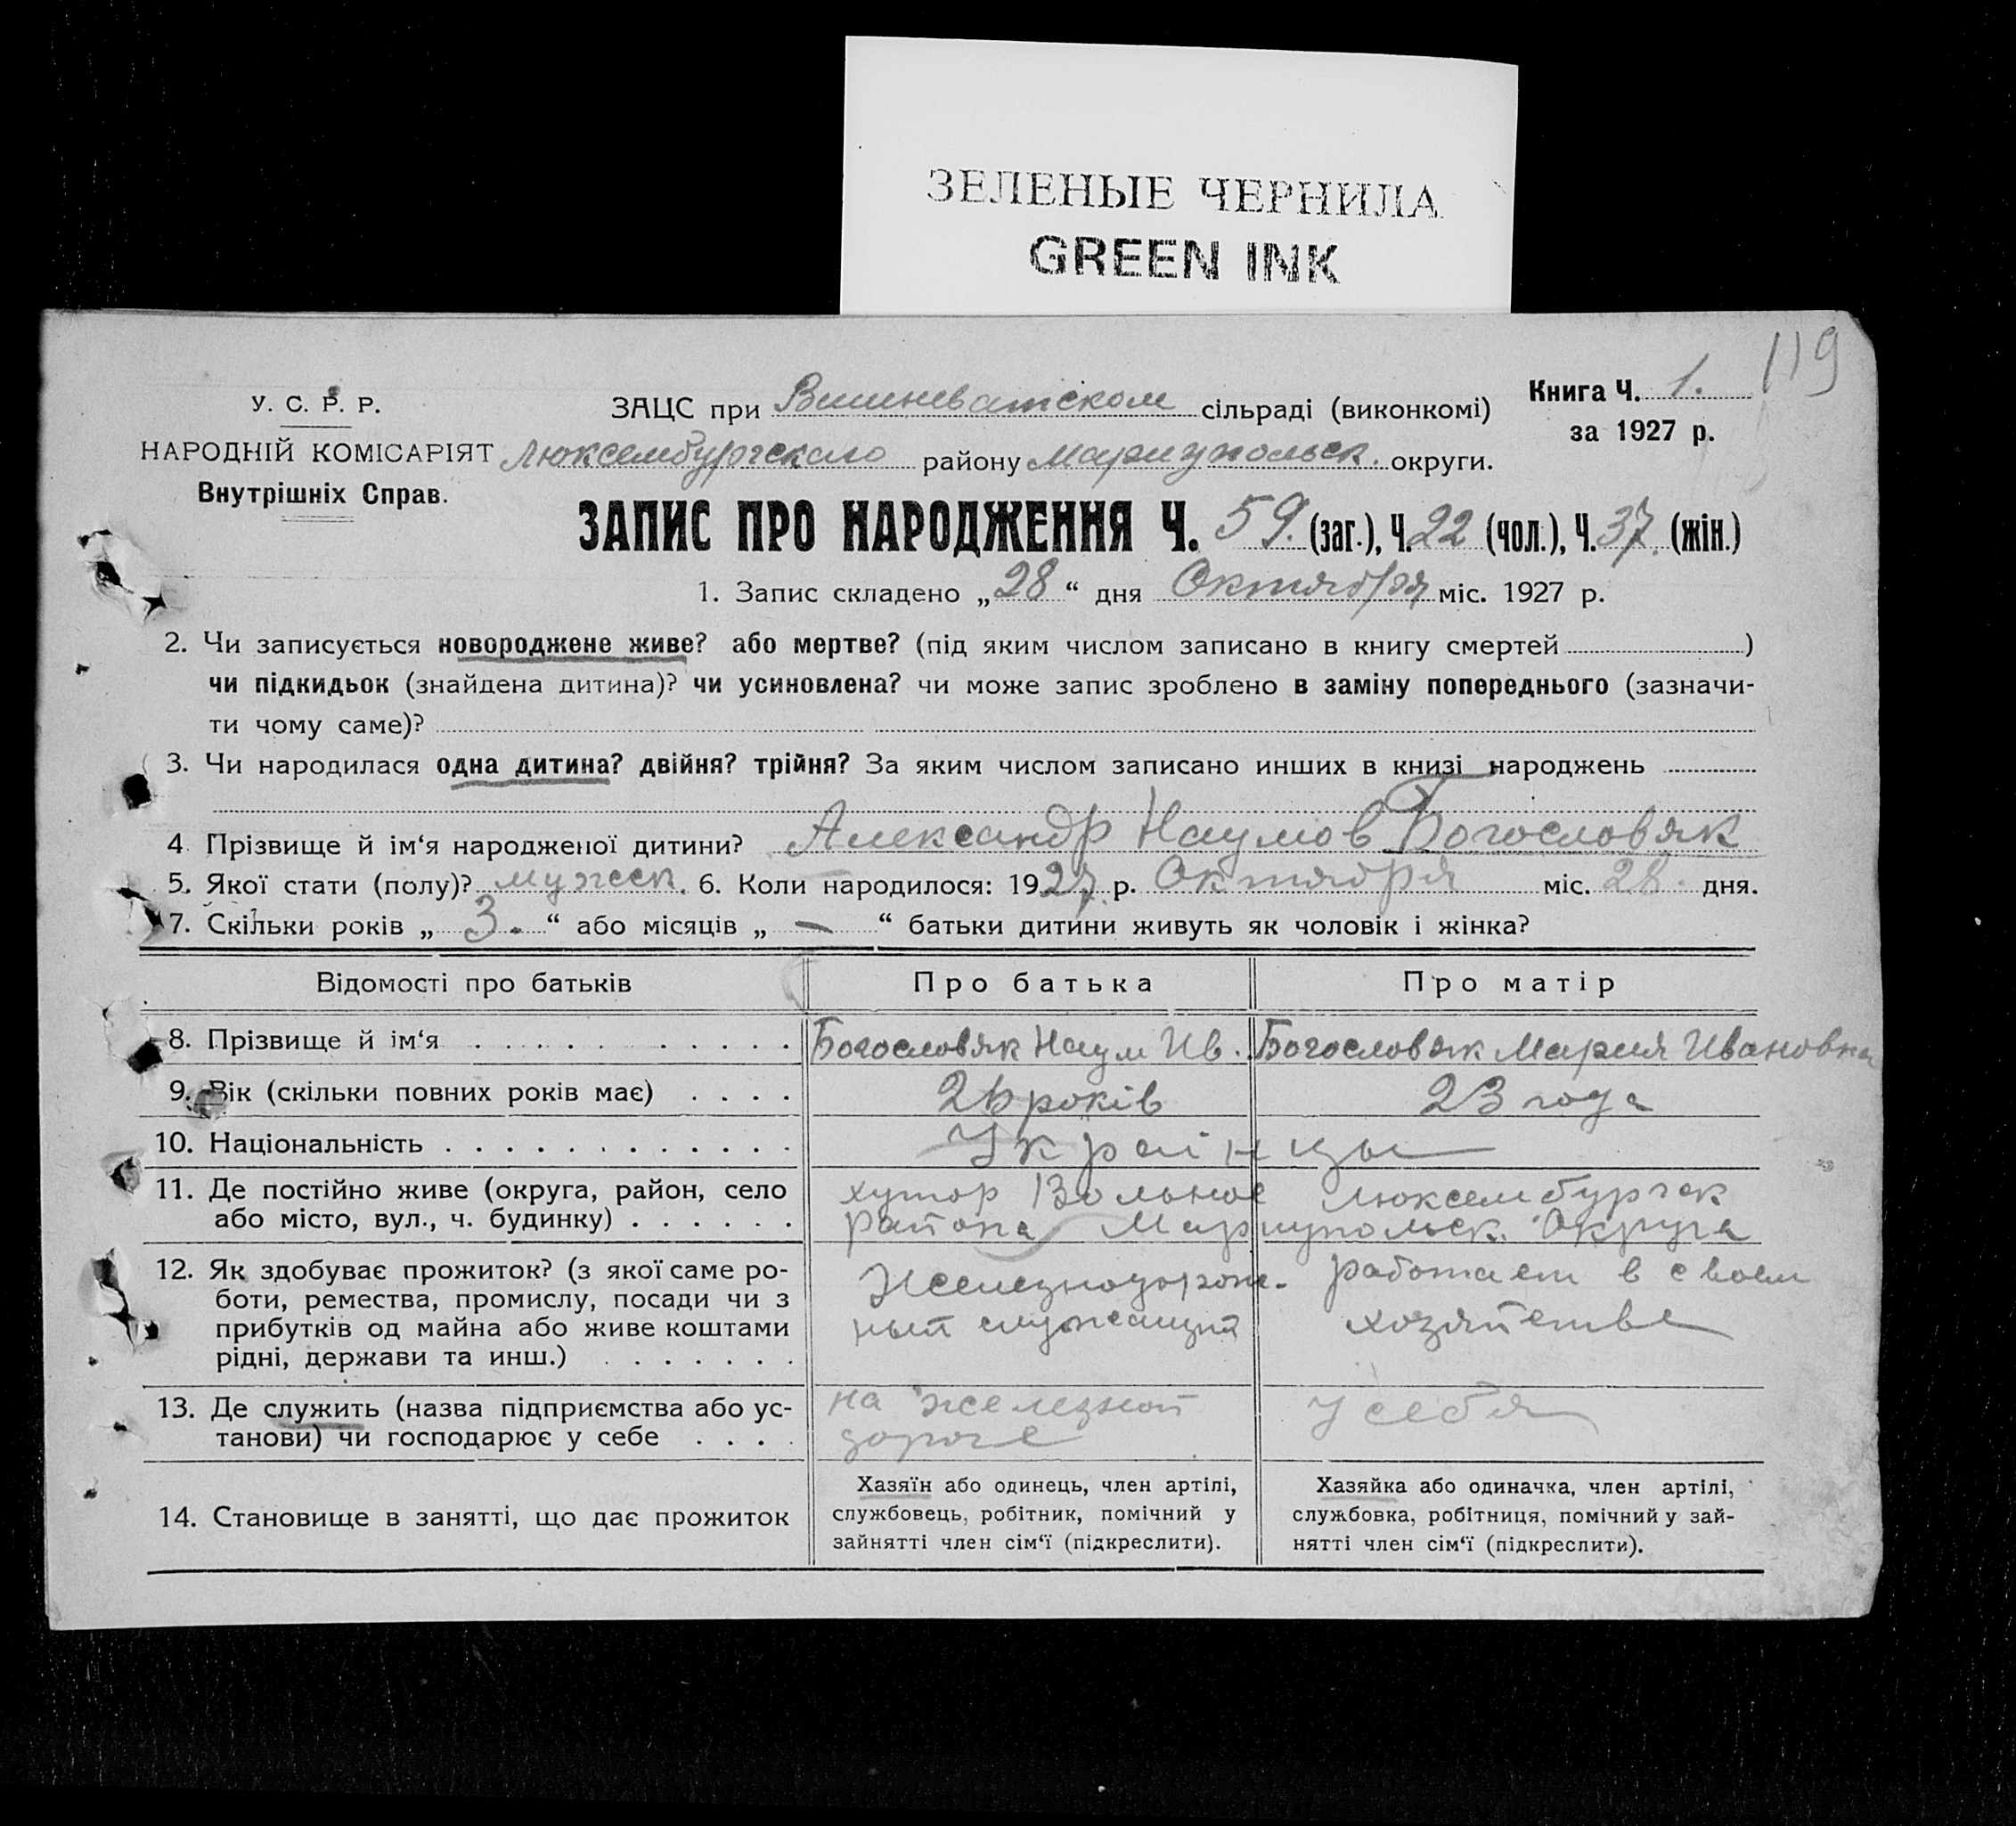 ЗЕЛЕНЫЕ ЧЕРНИЛА
GREEN INK
119
У. С. Р. Р.
НАРОДНІЙ КОМІСАРІЯТ
Внутрішніх Справ.
ЗАЦС при Вишневатском сільраді (виконкомі)
Люксембургского району Мариупольск. округи.
Книга Ч. 1.
за 1927 р.
ЗАПИС ПРО НАРОДЖЕННЯ Ч. 59. (заг.), Ч. 22 (чол.), Ч. 37. (жін.)
1. Запис складено „28“ дня Октября міс. 1927 р.
2. Чи записується новороджене живе? або мертве? (під яким числом записано в книгу смертей )
чи підкидьок (знайдена дитина)? чи усиновлена? чи може запис зроблено в заміну попереднього (зазначи-
ти чому саме)?
3. Чи народилася одна дитина? двійня? трійня? За яким числом записано инших в книзі народжень
4 Прізвище й ім‘я народженої дитини? Александр Наумов Богословяк
5. Якої стати (полу)? мужеск. 6. Коли народилося: 1927 р. Октября міс. 28. дня.
7. Скільки років „ 3. “ або місяців „ — “ батьки дитини живуть як чоловік і жінка?
Відомості про батьків Про батька Про матір
8. Прізвище й ім‘я Богословяк Наум Ив. Богословяк Мария Ивановна
9. Вік (скільки повних років має) 26 років 23 года
10. Національність Українцы
11. Де постійно живе (округа, район, село хутор Вольное Люксембургск
або місто, вул., ч. будинку) района Мариупольск. Округа
12. Як здобуває прожиток? (з якої саме ро- Железнодорож- работает в своем
боти, ремества, промислу, посади чи з ный служащий хозяйстве
прибутків од майна або живе коштами
рідні, держави та инш.)
13. Де служить (назва підприємства або ус- на железной у себя
танови) чи господарює у себе дороге
14. Становище в занятті, що дає прожиток
Хазяїн або одинець, член артілі,
службовець, робітник, помічний у
зайнятті член сім‘ї (підкреслити).
Хазяйка або одиначка, член артілі,
службовка, робітниця, помічний у зай-
нятті член сім‘ї (підкреслити).